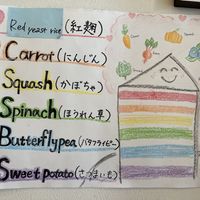 Red yeast rice (紅麹)
Carrot (にんじん)
Squash (かぼちゃ)
Spinach (ほうれん草)
Butterflypea (バタフライピー)
Sweet potato (さつまいも)